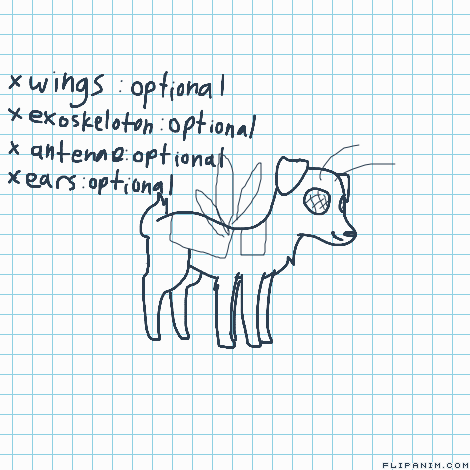 x wings : optional
x exoskeleton : optional
x antennae : optional
x ears : optional
FLIPANIM.COM